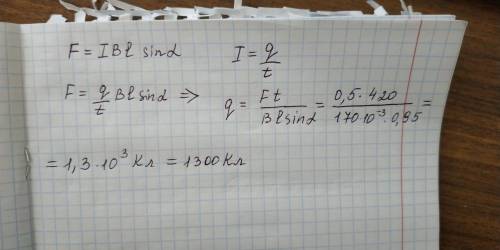 F = IBl sinα    I = q/t
F = q/t Bl sinα ⇒ q = Ft/Bl sinα = 0,5·420/170·10⁻³·0,95 =
= 1,3·10³ Кл = 1300 Кл